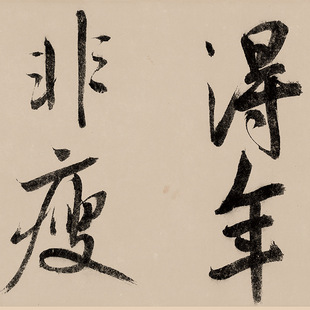 得年
非瘦